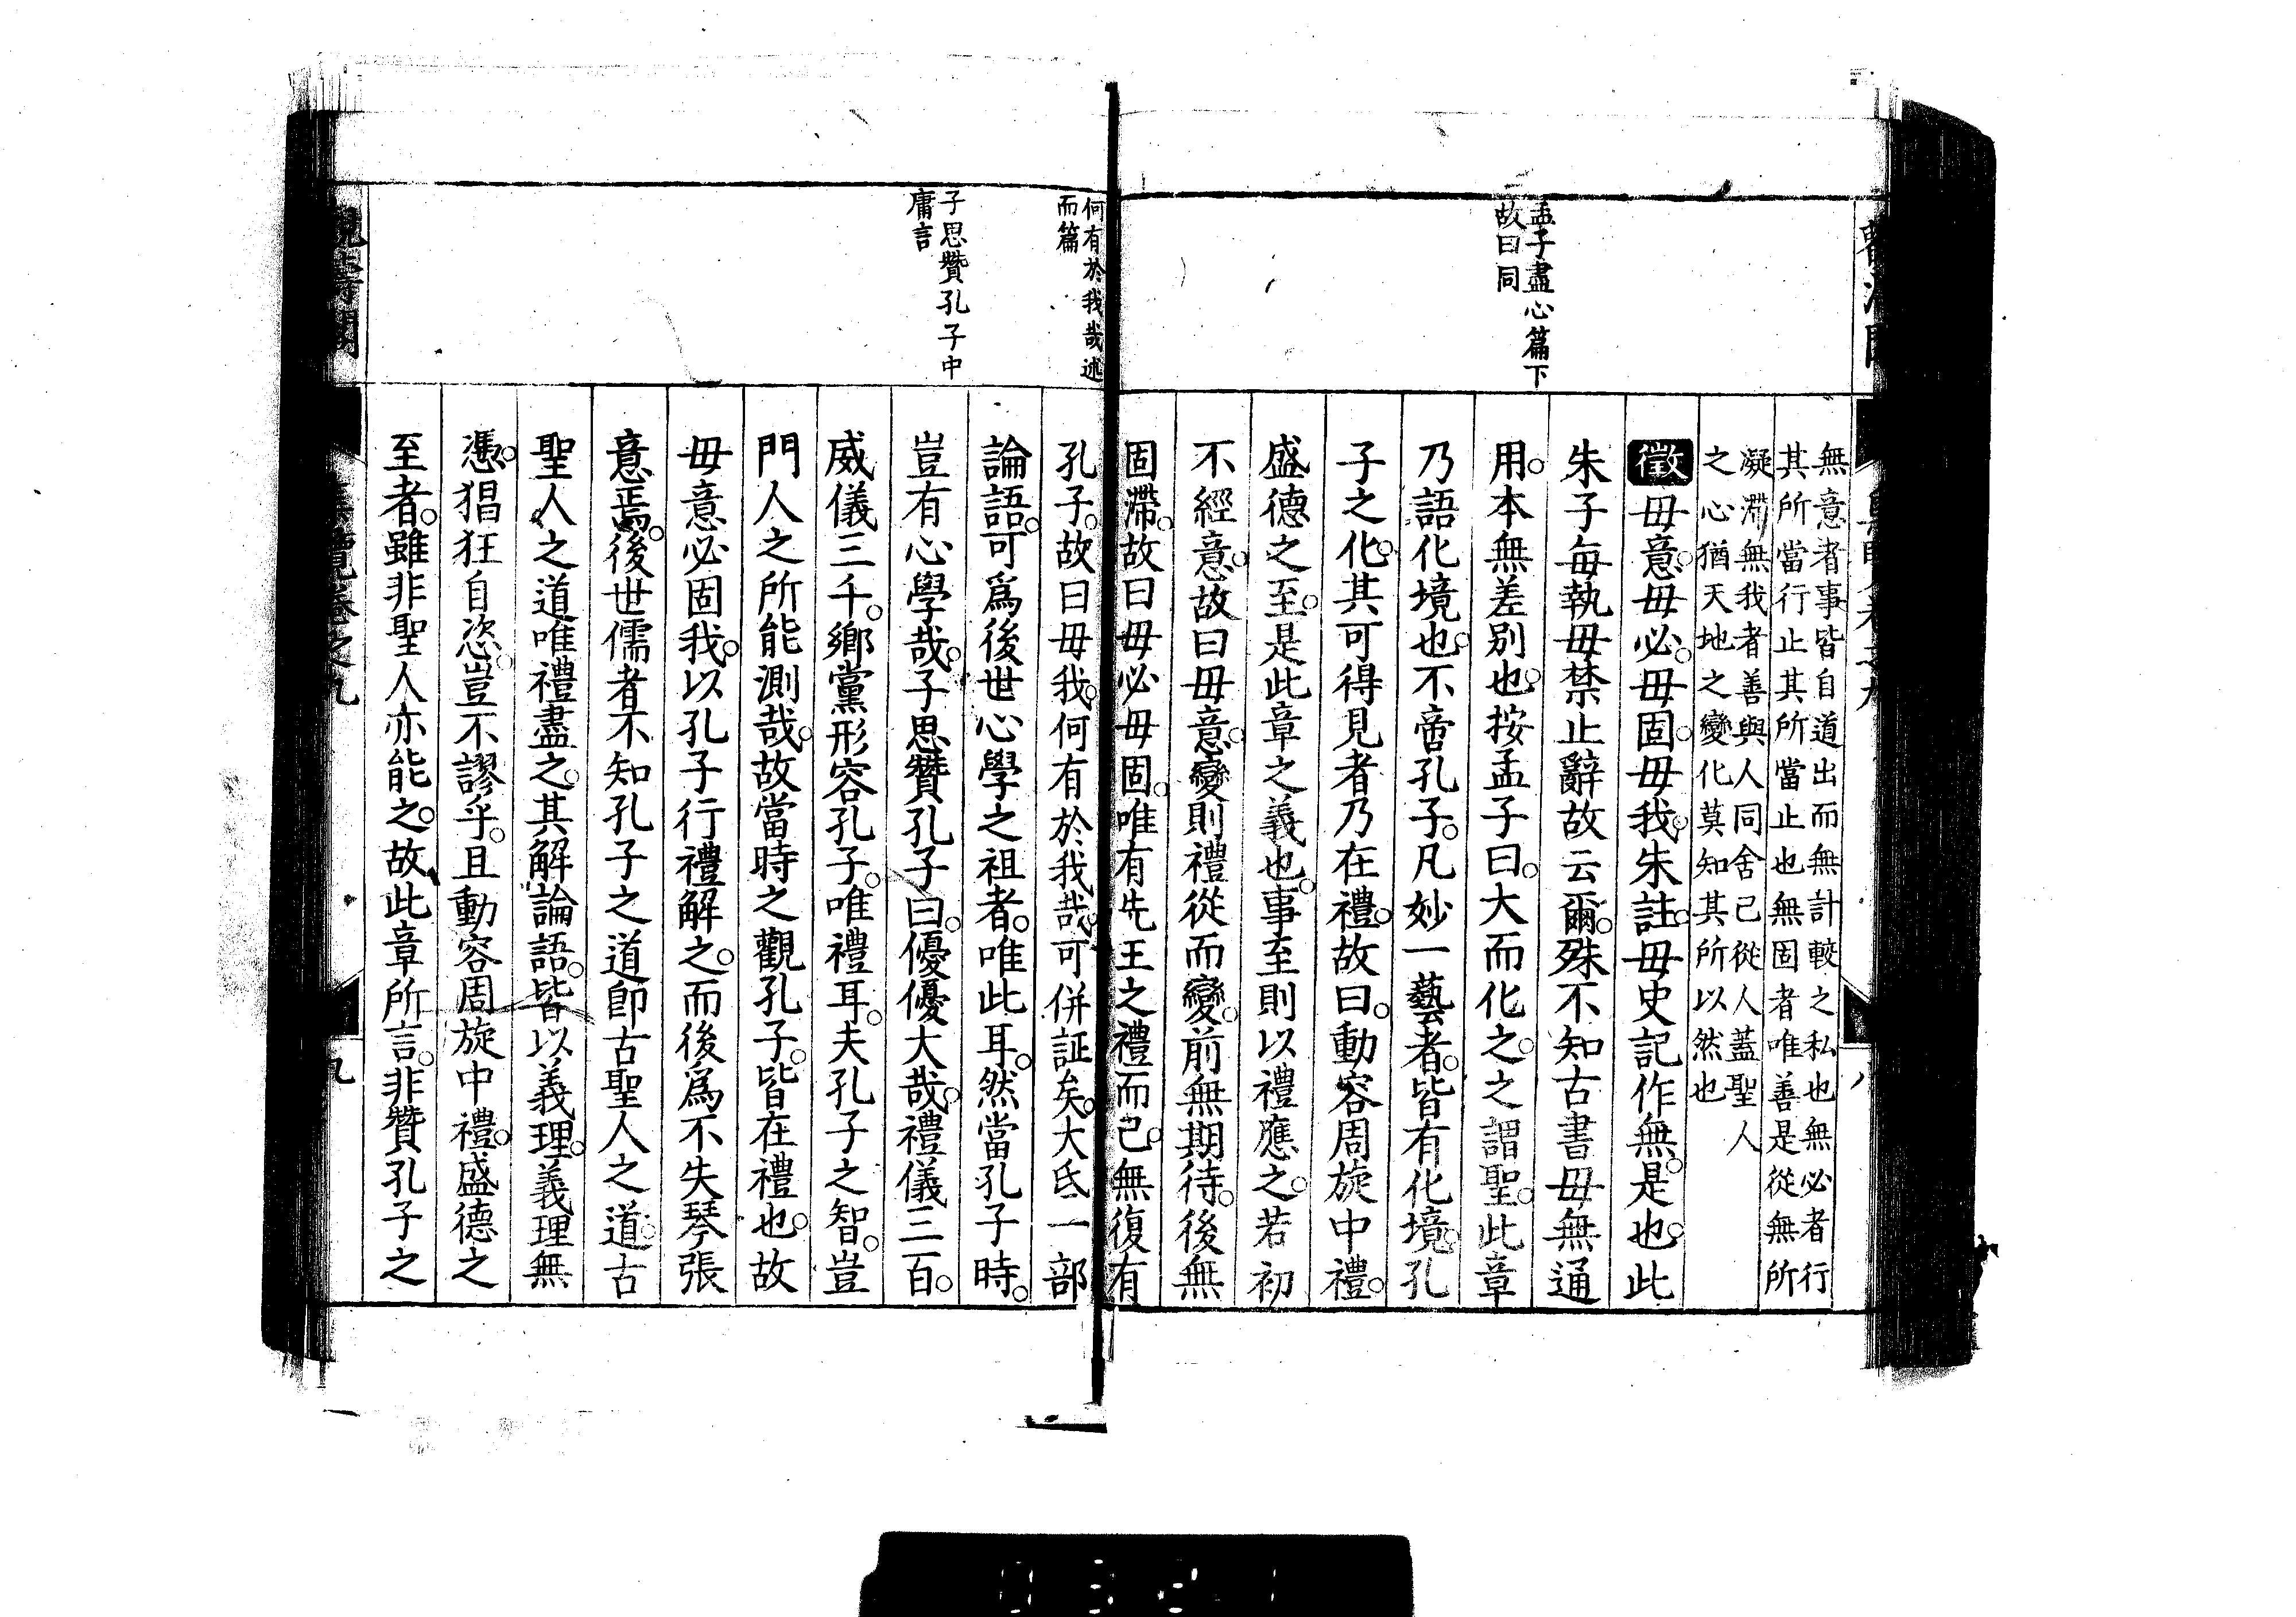 孟子盡心篇下
故曰同
無意者事皆自道出而無計較之私也無必者行
其所當行止其所當止也無固者唯善是從無所
凝滯無我者善與人同舍己從人蓋聖人
之心猶天地之變化莫知其所以然也
徵毋意。毋必。毋固。毋我。朱註。毋史記作無。是也。此
朱子每執毋禁止辭故云爾。殊不知古書毋無通
用。本無差別也。按孟子曰。大而化之。之謂聖。此章
乃語化境也。不啻孔子。凡妙一藝者。皆有化境。孔
子之化。其可得見者乃在禮。故曰。動容周旋中禮。
盛德之至。是此章之義也。事至則以禮應之。若初
不經意。故曰毋意。變則禮從而變。前無期待。後無
固滯。故曰毋必毋固。唯有先王之禮而已。無復有
何有於我哉述
而篇
子思贊孔子中
庸言
孔子。故曰毋我。何有於我哉。可併証矣。大氐一部
論語。可爲後世心學之祖者。唯此耳。然當孔子時。
豈有心學哉。子思贊孔子曰。優優大哉。禮儀三百。
威儀三千。鄉黨形容孔子。唯禮耳。夫孔子之智。豈
門人之所能測哉。故當時之觀孔子。皆在禮也。故
毋意必固我。以孔子行禮解之。而後爲不失琴張
意焉。後世儒者不知孔子之道卽古聖人之道。古
聖人之道唯禮盡之。其解論語。皆以義理。義理無
憑。猖狂自恣。豈不謬乎。且動容周旋中禮。盛德之
至者。雖非聖人亦能之。故此章所言。非贊孔子之
覽卷之九
九